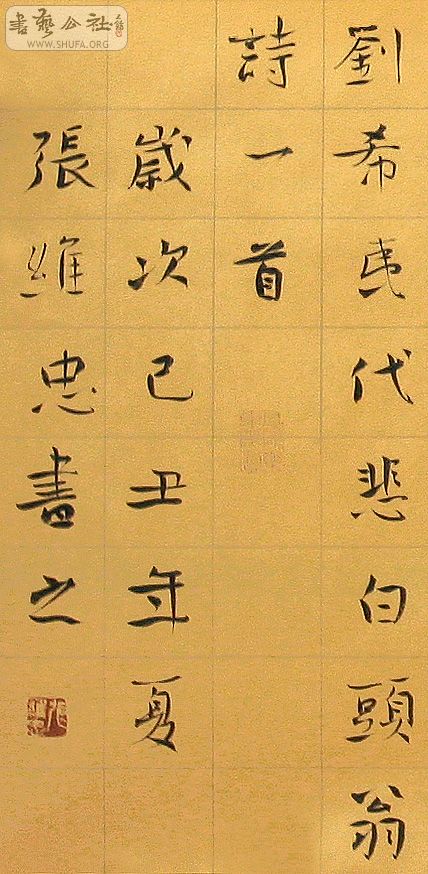 劉希夷代悲白頭翁
詩一首
歲次己丑年夏
張維忠書之
書藝公社
WWW.SHUFA.ORG